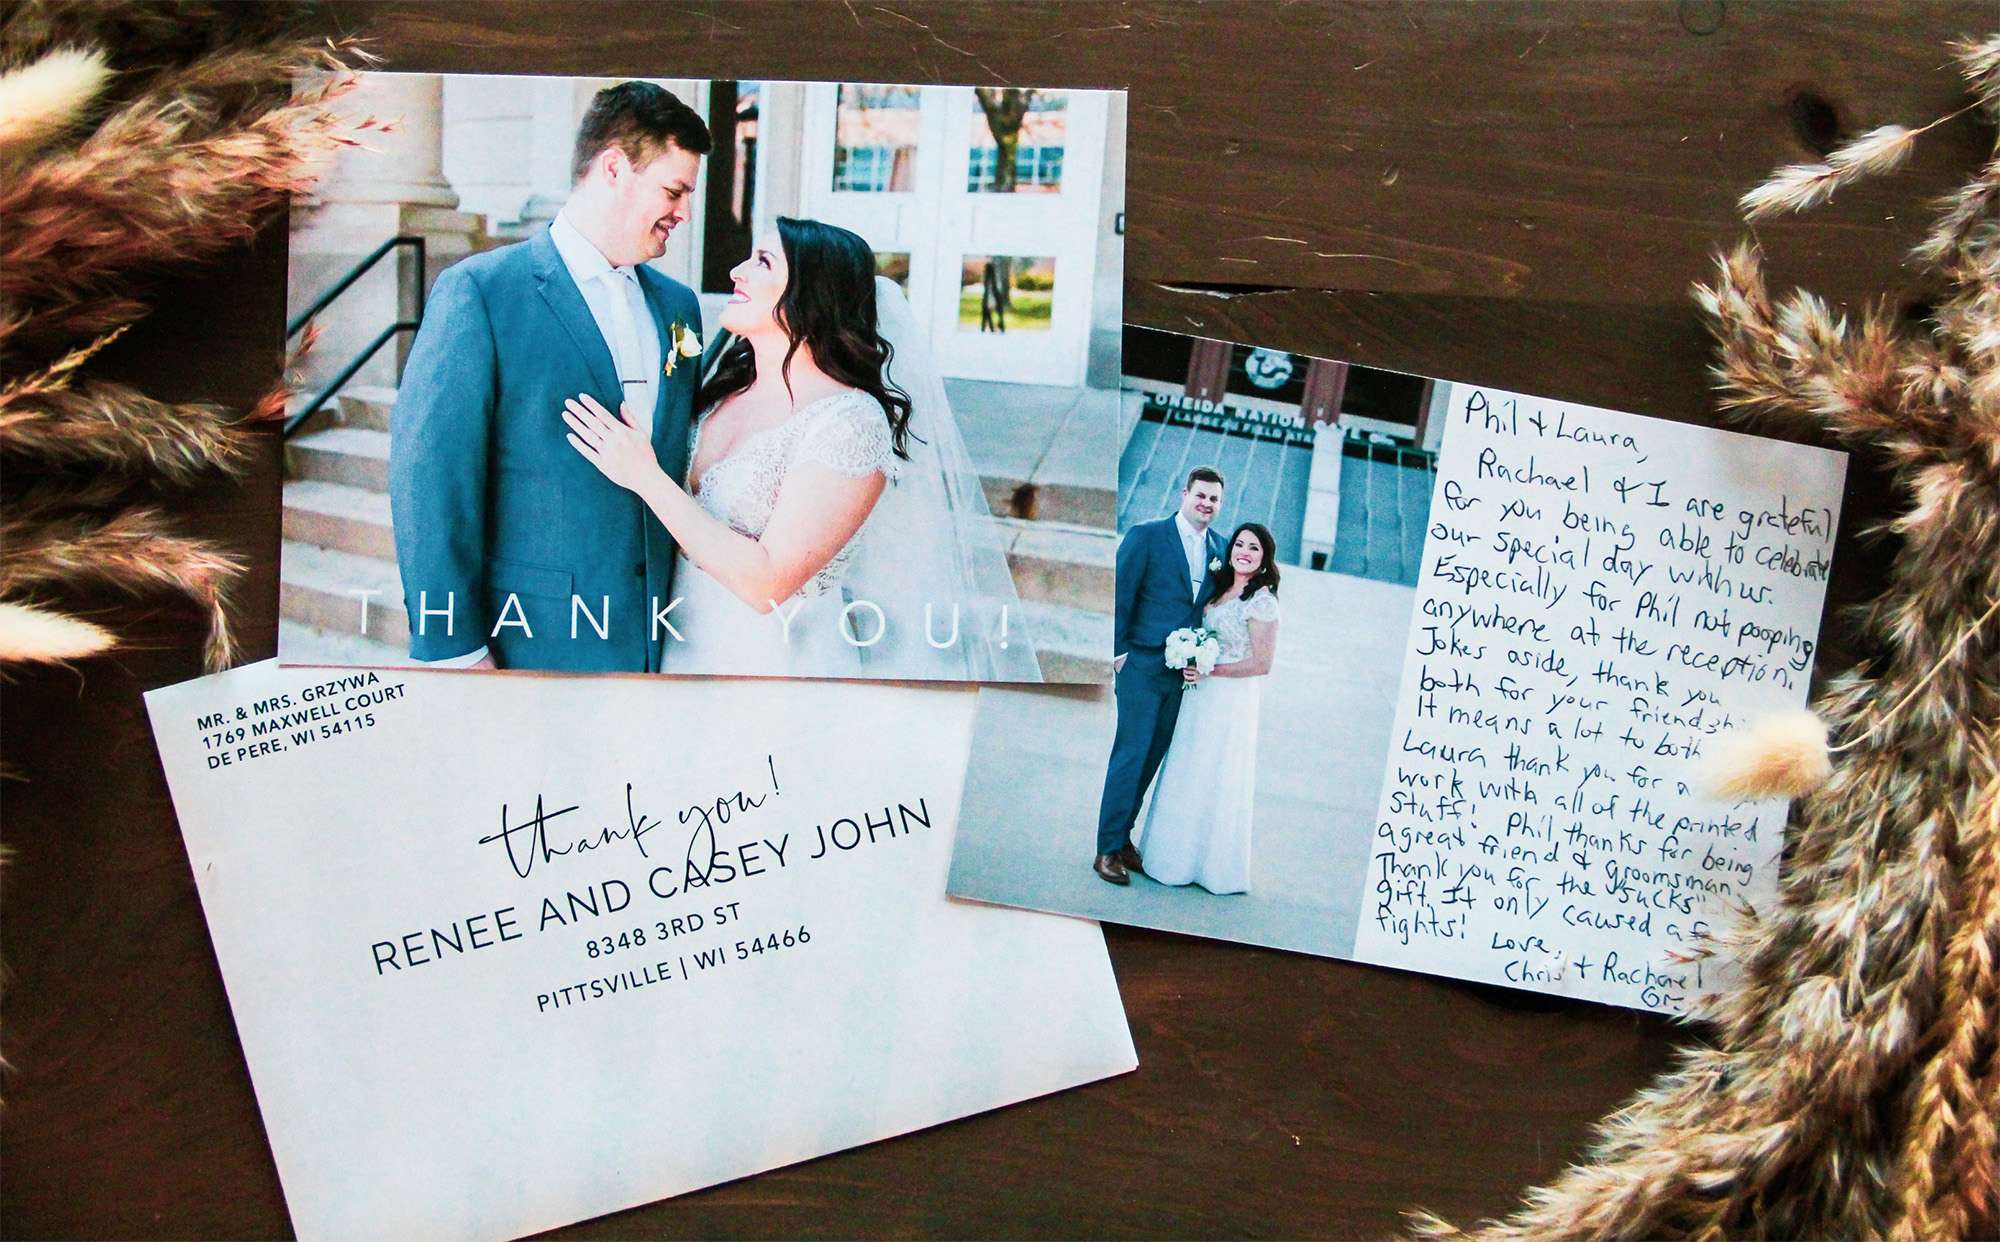 THANK YOU!
MR. & MRS. GRZYWA
1769 MAXWELL COURT
DE PERE, WI 54115
thank you!
RENEE AND CASEY JOHN
8348 3RD ST
PITTSVILLE | WI 54466
ONEIDA NATION GATE
LAMBEAU FIELD
Phil & Laura,
Rachael & I are grateful
for you being able to celebrate
our special day with us.
Especially for Phil not pooping
anywhere at the reception.
Jokes aside, thank you
both for your friendshi
It means a lot to both
Laura thank you for a
work with all of the printed
stuff! Phil thanks for being
a great friend & groomsman
Thank you for the "sucks"
gift. It only caused a f
fights! Love,
Chris + Rachael
Gr